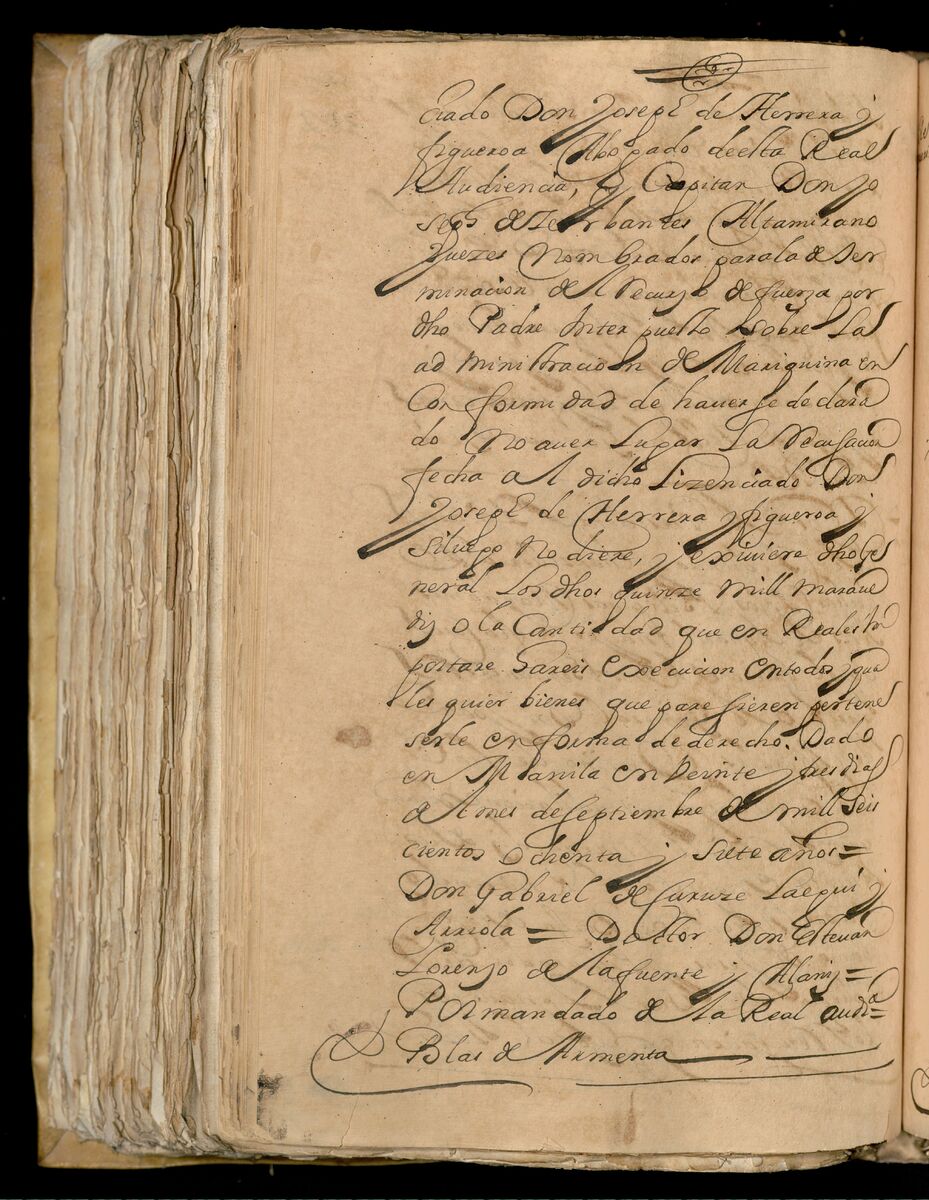 ciado Don Joseph de Herrera y
figueroa Abogado deesta Real
Audiencia, y Capitan Don jo
seph de Zerbantes Altamirano
juezes Nombrados parala deter
minacion del recurso de fuerza por
dho Padre Interpuesto sobre La
administracion de Mariquina en
Conformidad de haverse declara
do No aver Lugar La recusacion
fecha al dicho Lizenciado Don
Joseph de Herrera y figueroa y
siluego No diere, y exiviere dho Ge
neral Los dhos quinze mill marave
dis o la Cantidad que en Reales Im
portare hareis execucion entodos y qua
lesquier bienes que paresieren pertene
serle en forma de derecho. Dado
en Manila en Veinte y tres dias
del mes de septiembre de mill seis
cientos Ochenta y siete años =
Don Gabriel de Curuze Laegui y
Arriola = Doctor Don Estevan
Lorenzo de la fuente y Alaniz =
Por mandado de la Real audia =
Blas de Armenta